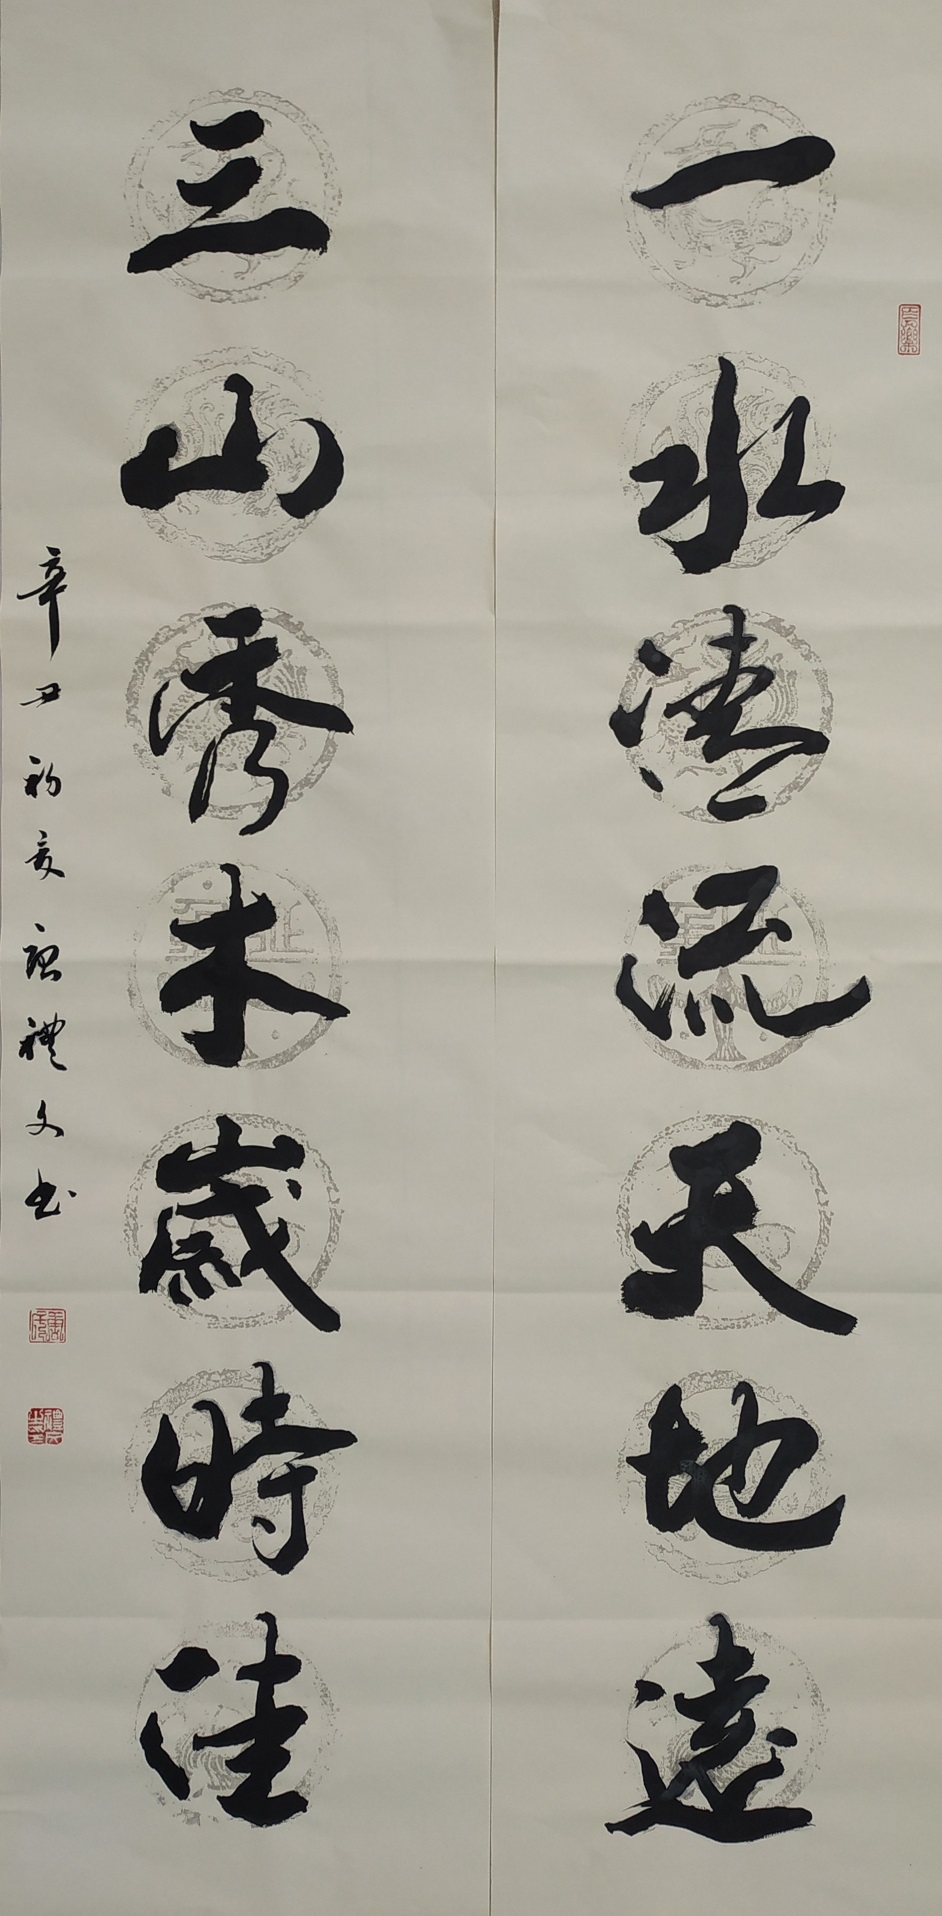 一水清流天地遠
三山秀木歲時佳
辛丑初夏 禮文书